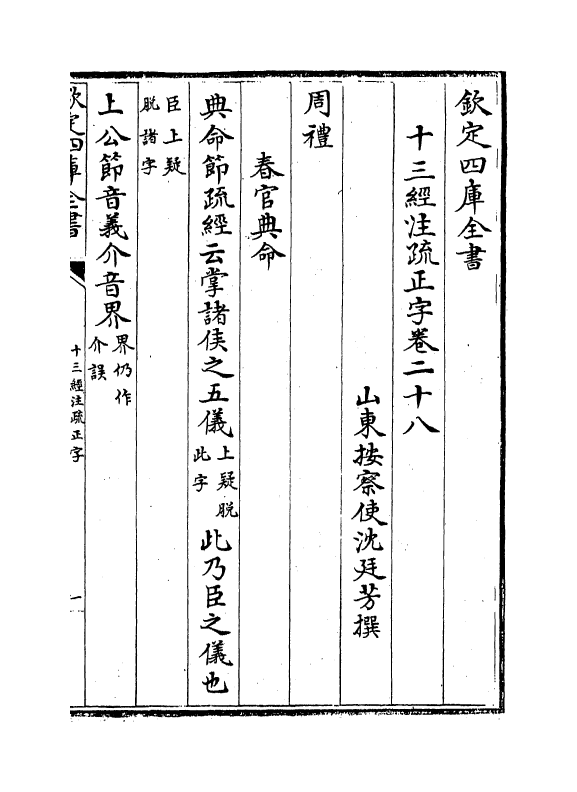 欽定四庫全書
十三經注疏正字卷二十八
山東按察使沈廷芳撰
周禮
春官典命
典命節疏經云掌諸侯之五儀上疑脱此字此乃臣之儀也
臣上疑脱諸字
上公節音義介音界界仍作介誤
欽定四庫全書
十三經注疏正字
一